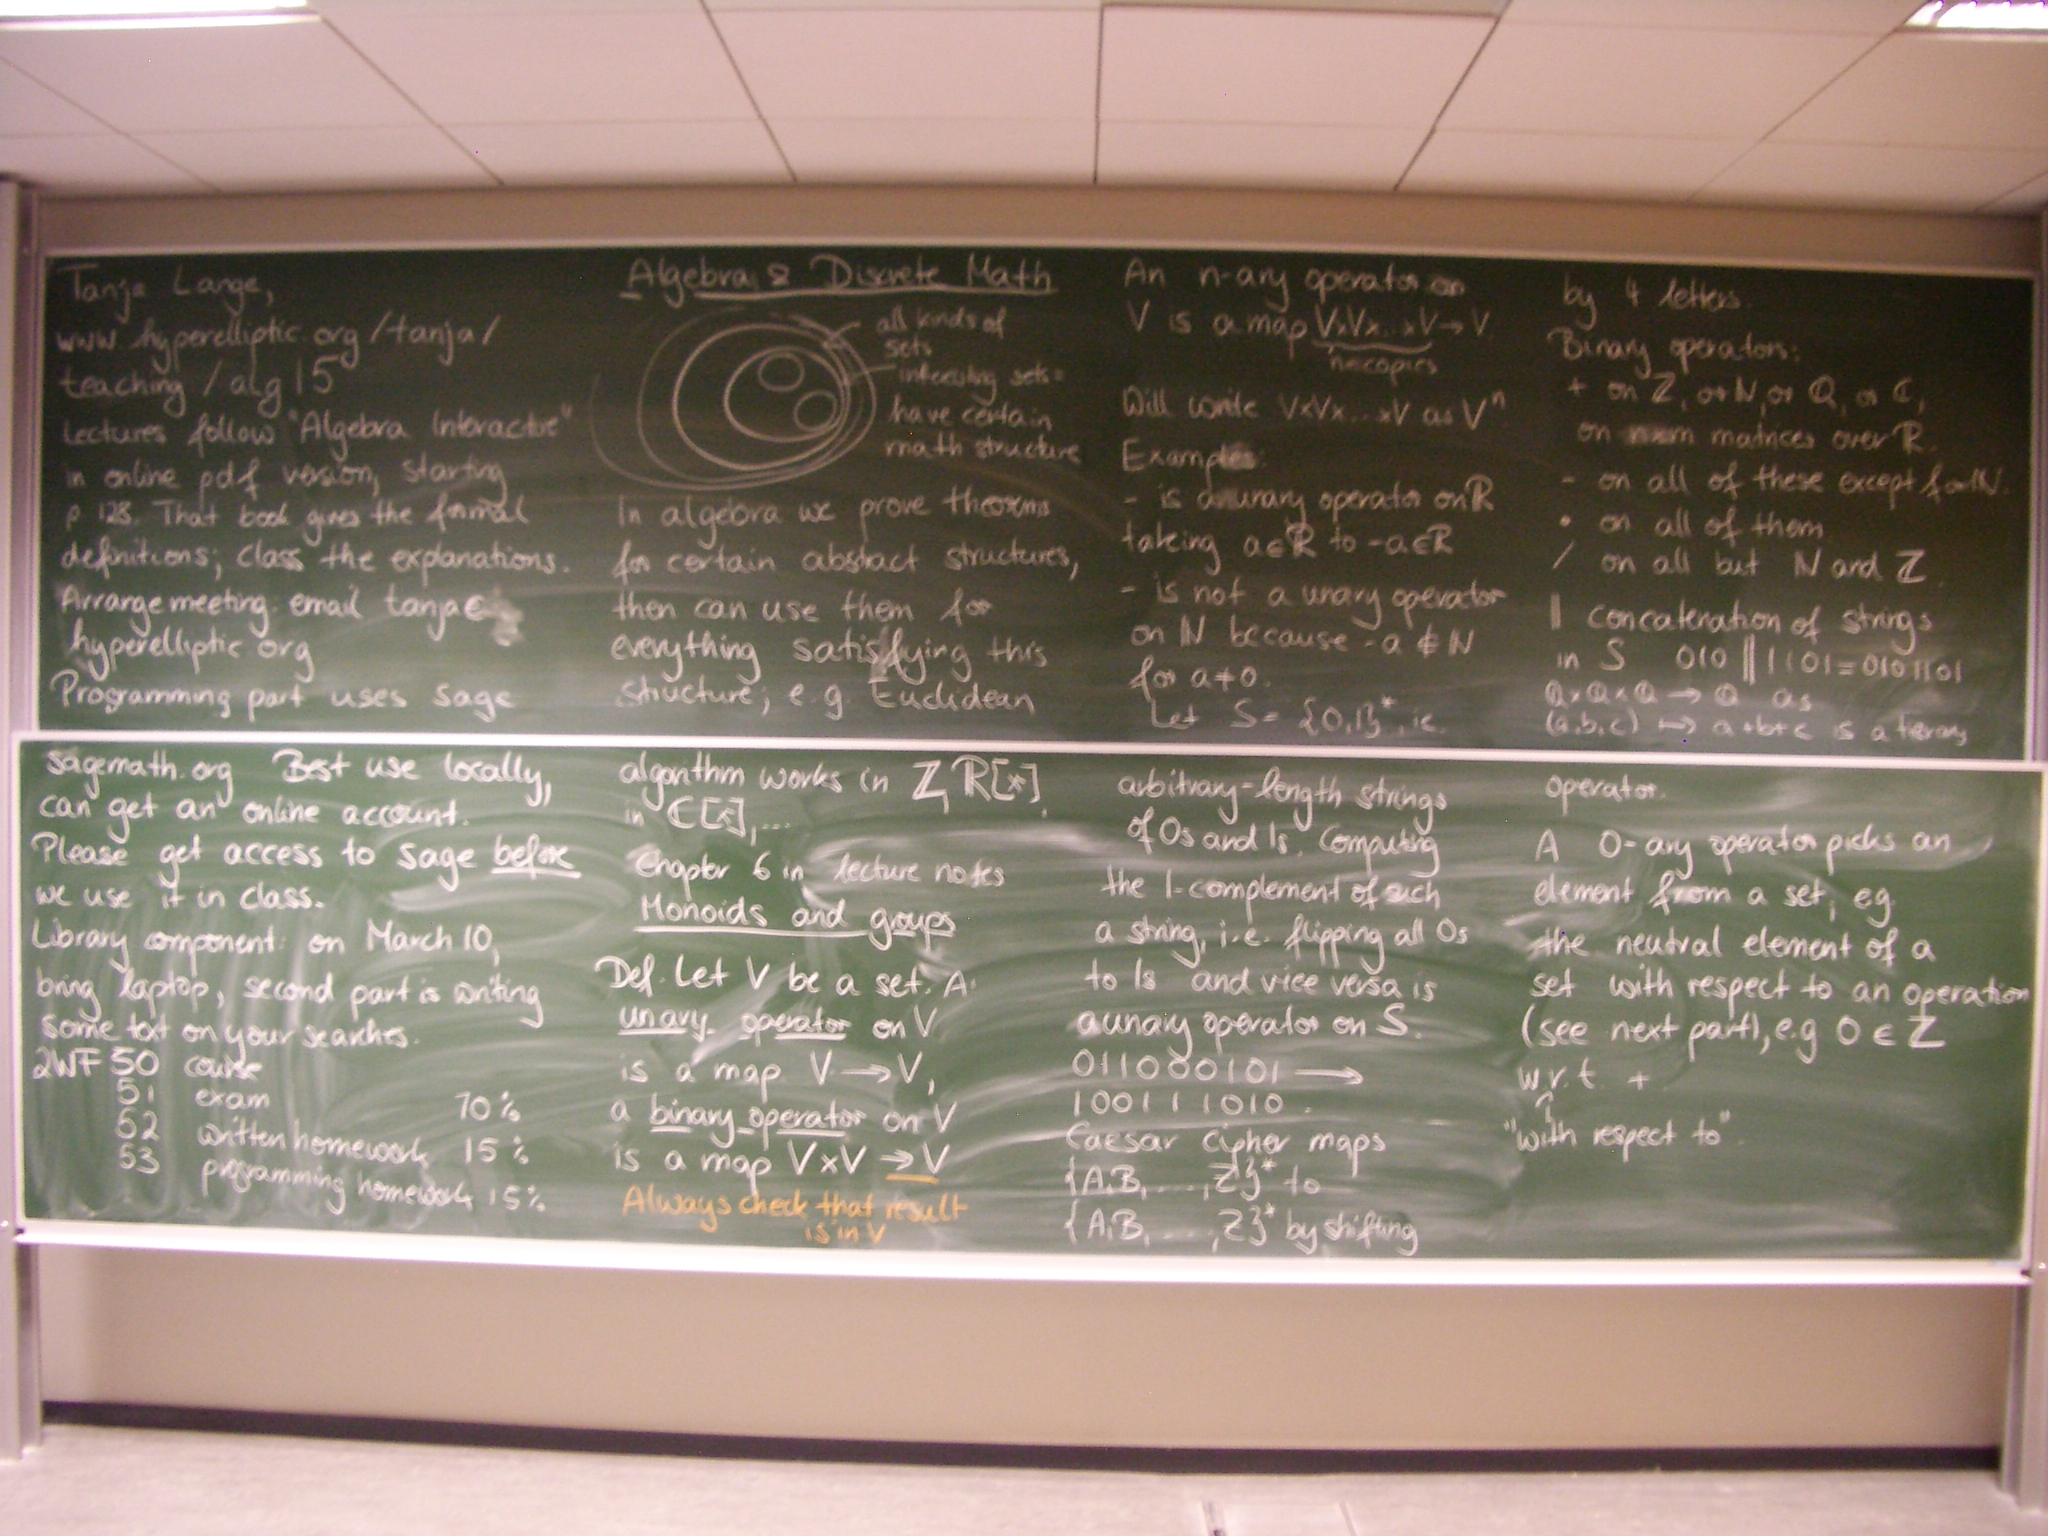 Tanja Lange,
www.hyperelliptic.org/tanja/
teaching/alg15
Lectures follow "Algebra Interactive"
in online pdf version, starting
p 128. That book gives the formal
definitions; class the explanations.
Arrange meeting: email tanja@
hyperelliptic.org
Programming part uses sage
sagemath.org Best use locally,
can get an online account.
Please get access to sage before
we use it in class.
Library component: on March 10,
bring laptop, second part is writing
some text on your searches.
2WF50 course
51 exam 70%
52 written homework 15%
53 programming homework 15%
Algebra & Discrete Math
all kinds of
sets
interesting sets =
have certain
math structure
In algebra we prove theorems
for certain abstract structures,
then can use them for
everything satisfying this
structure; e.g. Euclidean
algorithm works in ℤ, ℝ[x],
in ℂ[x],...
Chapter 6 in lecture notes
Monoids and groups
Def. Let V be a set. A
unary operator on V
is a map V → V,
a binary operator on V
is a map V×V → V
Always check that result
is in V
An n-ary operator on
V is a map V×V×...×V → V
n copies
Will write V×V×...×V as Vⁿ
Examples:
- is a unary operator on ℝ
taking a∈ℝ to -a∈ℝ
- is not a unary operator
on ℕ because -a ∉ ℕ
for a≠0.
Let S = {0,1}*, i.e.
arbitrary-length strings
of 0s and 1s. Computing
the 1-complement of such
a string, i.e. flipping all 0s
to 1s and vice versa is
a unary operator on S.
011000101 →
100111010.
Caesar cipher maps
{A,B,...,Z}* to
{A,B,...,Z}* by shifting
by 4 letters.
Binary operators:
+ on ℤ, or ℕ, or ℚ, or ℂ,
on n×m matrices over ℝ.
- on all of these except for ℕ.
• on all of them
/ on all but ℕ and ℤ.
|| concatenation of strings
in S 010 || 1101 = 0101101
ℚ×ℚ×ℚ → ℚ as
(a,b,c) ↦ a+b+c is a ternary
operator.
A 0-ary operator picks an
element from a set; eg
the neutral element of a
set with respect to an operation
(see next part), e.g 0 ∈ ℤ
w.r.t. +
↑
"with respect to".